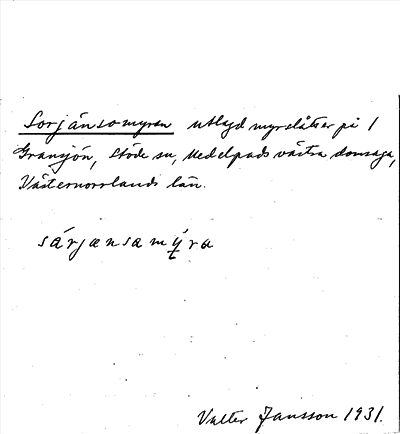 Sorjänsomyran utlagd myrslåtter på 1
Gransjön, Stöde sn, Medelpads västra domsaga,
Västernorrlands län.
särjænsamyra
Valter Jansson 1931.